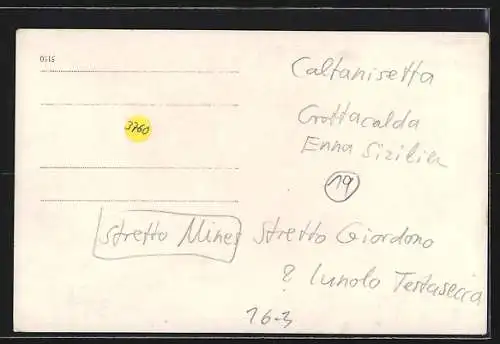 0115
Caltanisetta
3760
Grottacalda
Enna Sizilien
19
Stretto Mines Stretto Giordono
? lunolo Testasecca
16-3